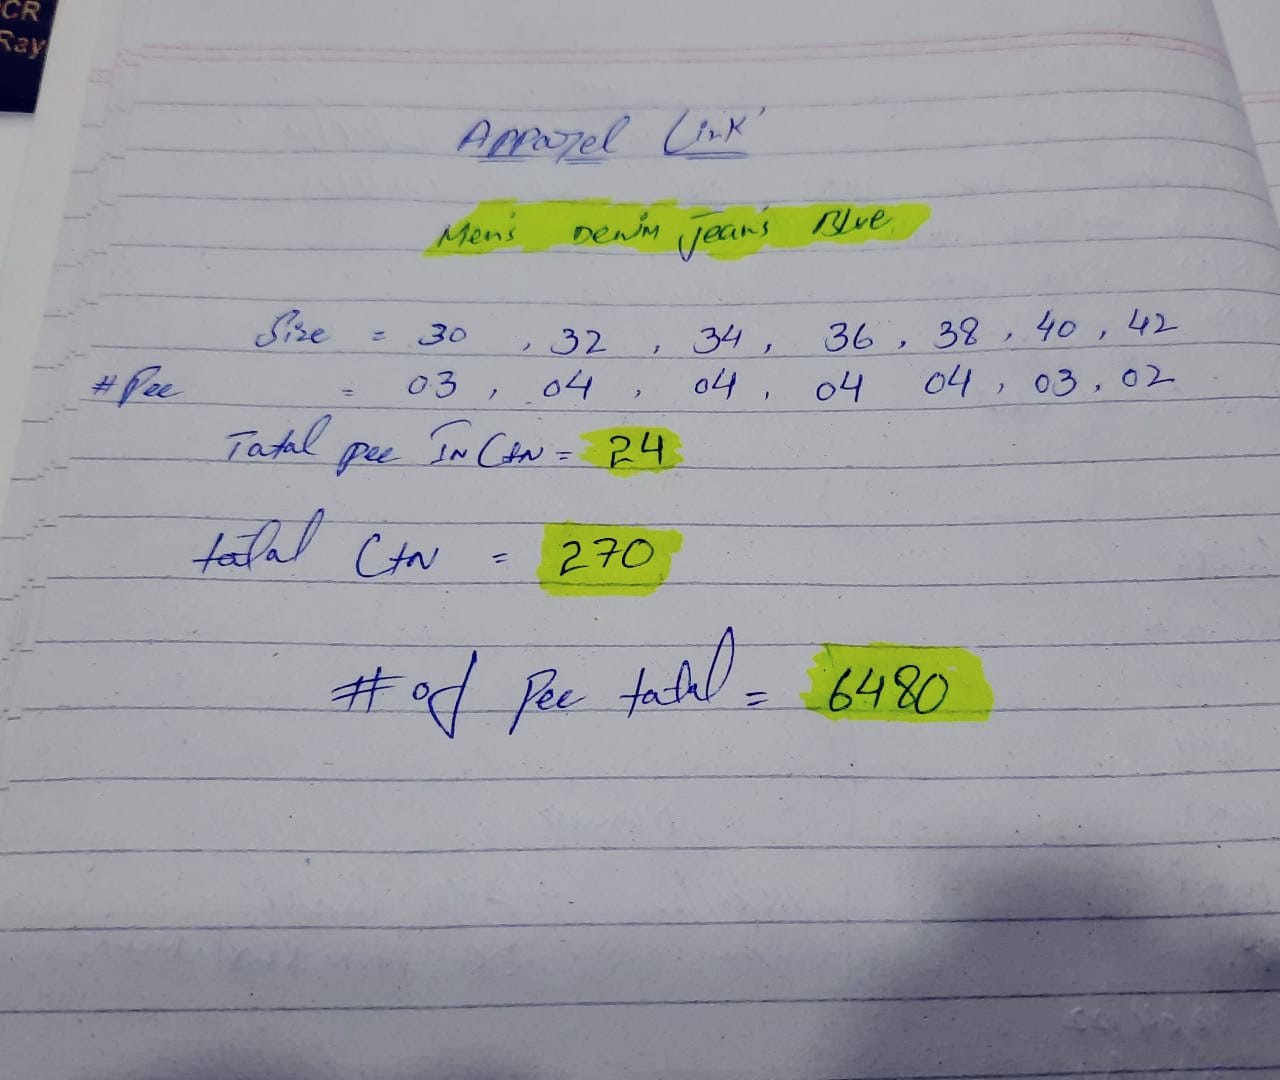 CR
Ray
Apparel Link
Men's Denim Jean's Blue
Size = 30 , 32 , 34 , 36 , 38 , 40 , 42
# Pec = 03 , 04 , 04 , 04 04 , 03 , 02
Total pec In Ctn = 24
total Ctn = 270
# of Pec total = 6480